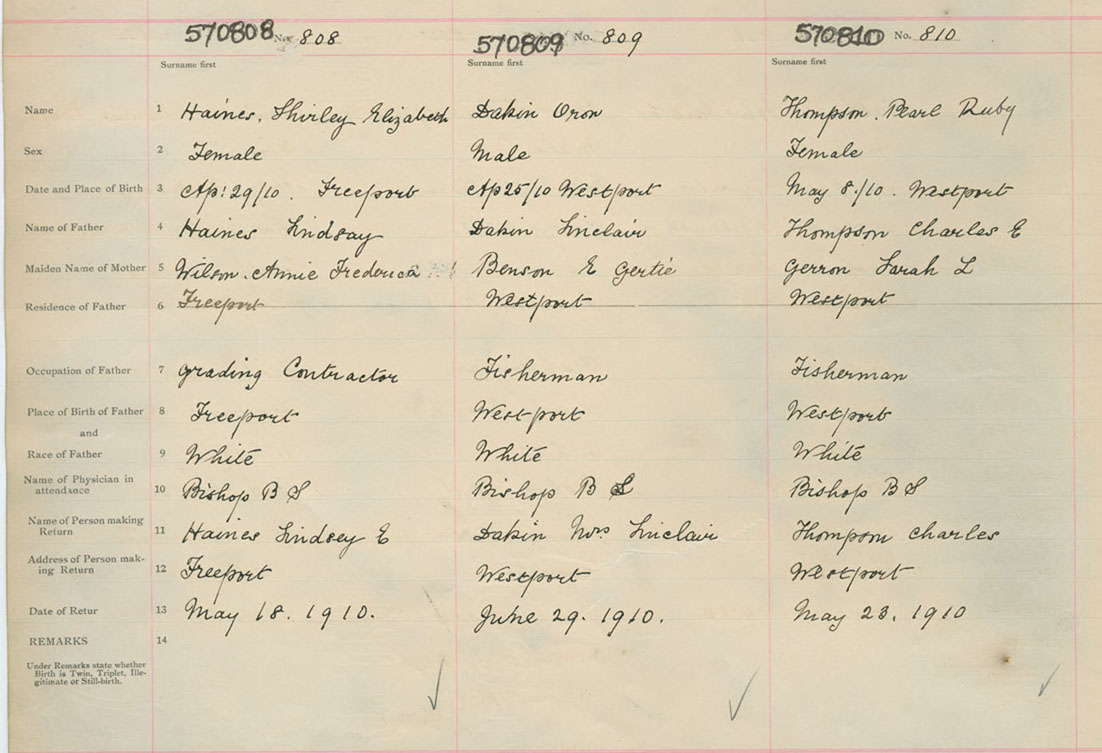 570808 No. 808 570809 No. 809 570810 No. 810
Surname first Surname first Surname first
Name 1 Haines, Shirley Elizabeth Dakin Oron Thompson. Pearl Ruby
Sex 2 Female Male Female
Date and Place of Birth 3 Ap: 29/10. Freeport Ap 25/10 Westport May 8./10. Westport
Name of Father 4 Haines Lindsay Dakin Sinclair Thompson Charles E
Maiden Name of Mother 5 Wilson. Annie Frederica Benson E Gertie Gerron Sarah L
Residence of Father 6 Freeport Westport Westport
Occupation of Father 7 grading Contractor Fisherman Fisherman
Place of Birth of Father 8 Freeport Westport Westport
and
Race of Father 9 White White White
Name of Physician in
attendance 10 Bishop B S Bishop B S Bishop B S
Name of Person making
Return 11 Haines Lindsey E Dakin Mrs Sinclair Thompson Charles
Address of Person mak-
ing Return 12 Freeport Westport Westport
Date of Retur 13 May 18. 1910. June 29. 1910. May 23. 1910
REMARKS 14
Under Remarks state whether
Birth is Twin, Triplet, Ille-
gitimate or Still-birth.